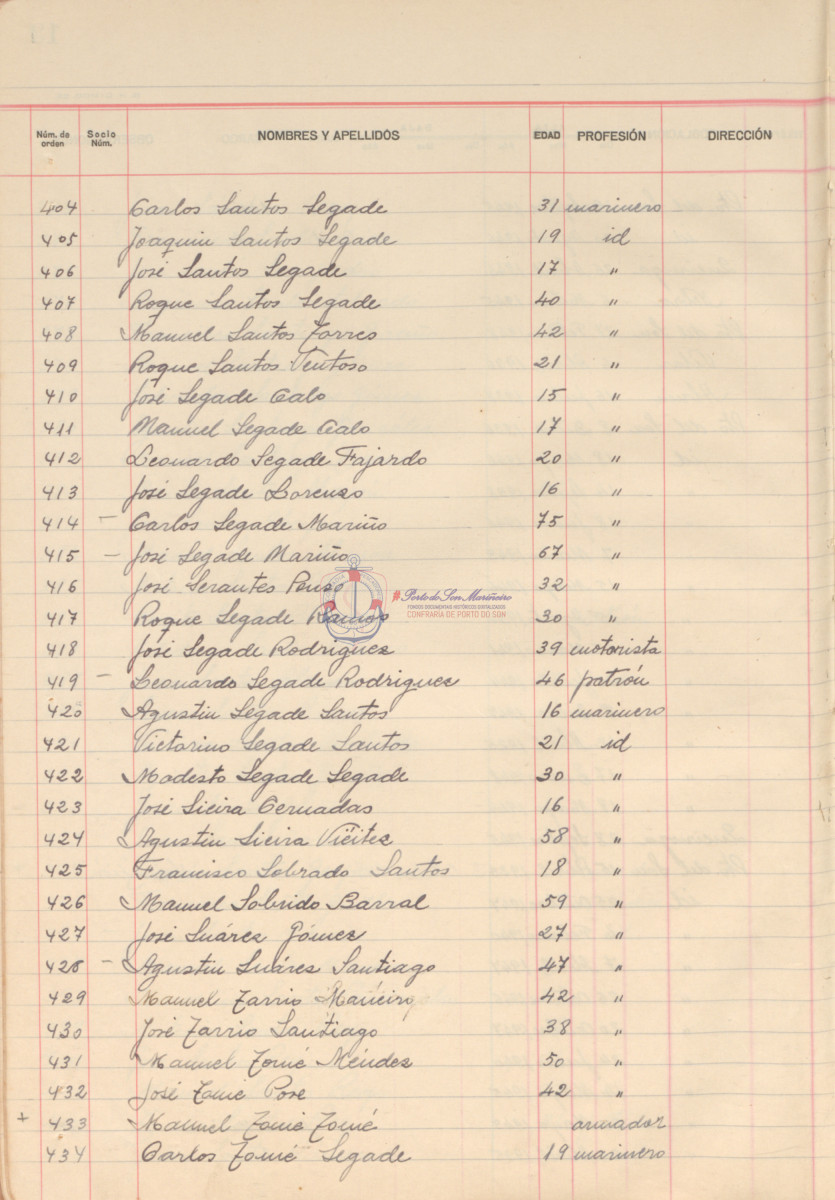 Núm. de orden Socio Núm. NOMBRES Y APELLIDOS EDAD PROFESIÓN DIRECCIÓN
404 Carlos Santos Segade 31 marinero
405 Joaquin Santos Segade 19 id
406 José Santos Segade 17 "
407 Roque Santos Segade 40 "
408 Manuel Santos Torres 42 "
409 Roque Santos Ventoso 21 "
410 José Segade Calo 15 "
411 Manuel Segade Calo 17 "
412 Leonardo Segade Fajardo 20 "
413 José Segade Lorenzo 16 "
414 – Carlos Segade Mariño 75 "
415 – José Segade Mariño 67 "
416 José Serantes Penso 32 "
#Porto do Son Mariñeiro
FONDOS DOCUMENTAIS HISTÓRICOS DIGITALIZADOS
CONFRARÍA DE PORTO DO SON
417 Roque Segade Ramos 30 "
418 José Segade Rodriguez 39 motorista
419 – Leonardo Segade Rodriguez 46 patrón
420 Agustin Segade Santos 16 marinero
421 Victorino Segade Santos 21 id
422 Modesto Segade Segade 30 "
423 José Sieira Cernadas 16 "
424 Agustin Sieira Viéitez 58 "
425 Francisco Sobrado Santos 18 "
426 Manuel Sobrido Barral 59 "
427 José Suárez Gómez 27 "
428 – Agustin Suárez Santiago 47 "
429 Manuel Tarrio Mañeiro 42 "
430 José Tarrio Santiago 38 "
431 Manuel Tomé Méndez 50 "
432 José Tomé Pose 42 "
+ 433 Manuel Tomé Tomé armador
434 Carlos Tomé Segade 19 marinero